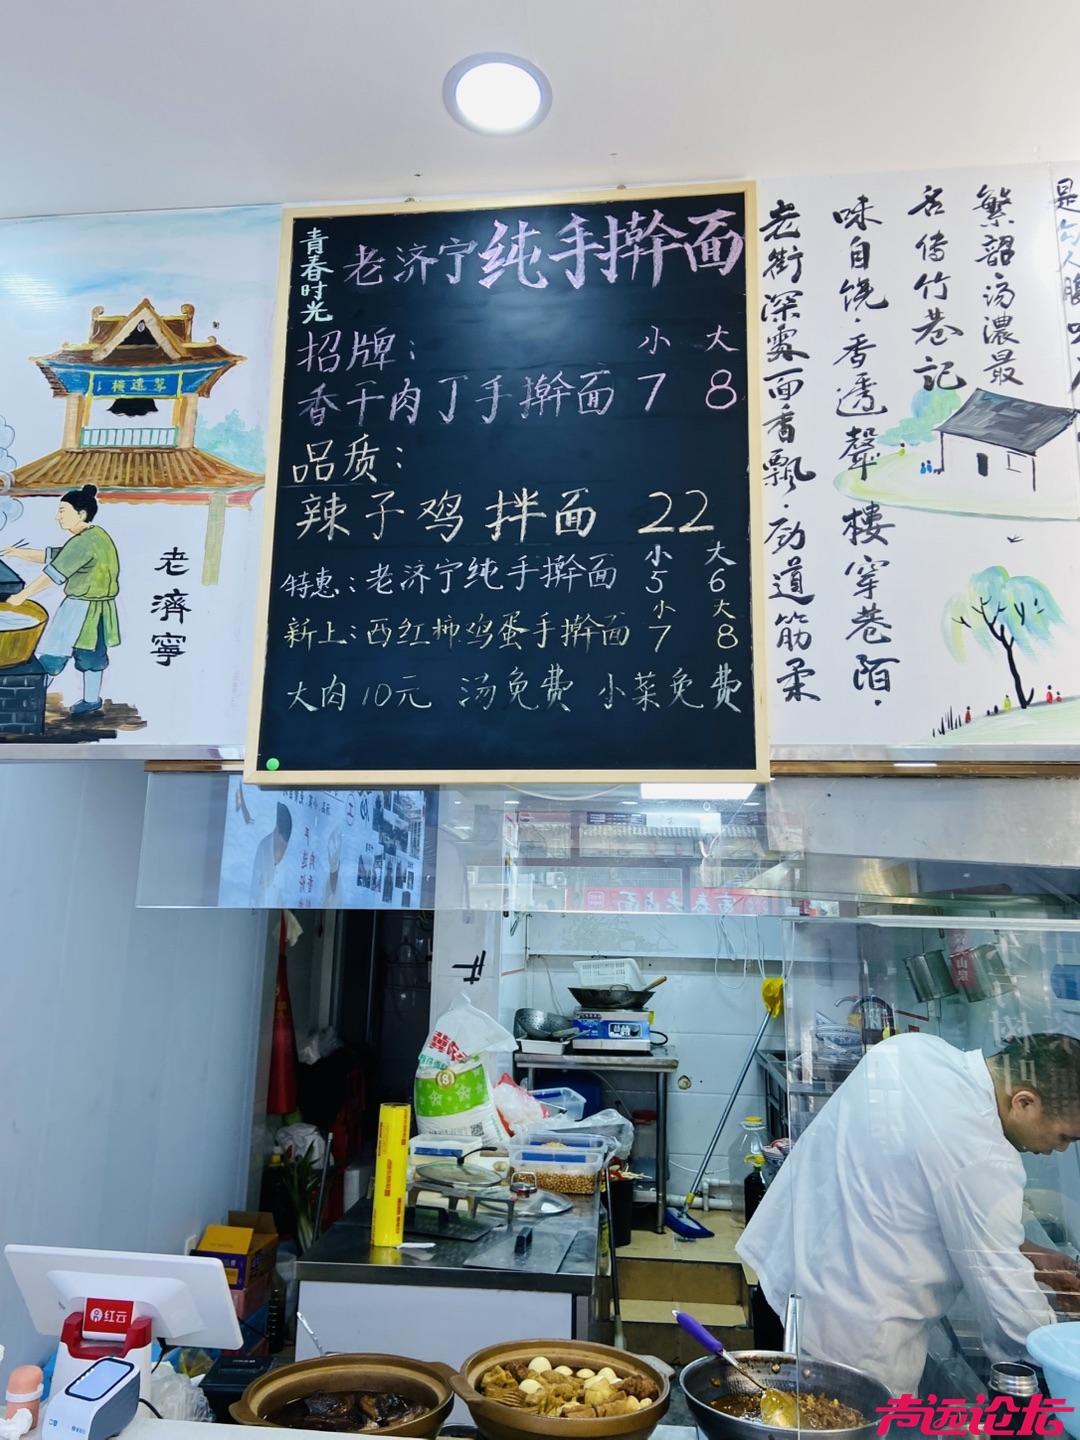 青春时光
老济宁纯手擀面
招牌： 小 大
香干肉丁手擀面 7 8
品质：
辣子鸡拌面 22
小 大
特惠：老济宁纯手擀面 5 6
小 大
新上：西红柿鸡蛋手擀面 7 8
大肉10元 汤免费 小菜免费
老濟寧
老街深处面香飘·劲道筋柔
味自饶·香透聲樓穿巷陌·
名传竹巷记
繁韶汤濃最
是勾人
红云
声远论坛